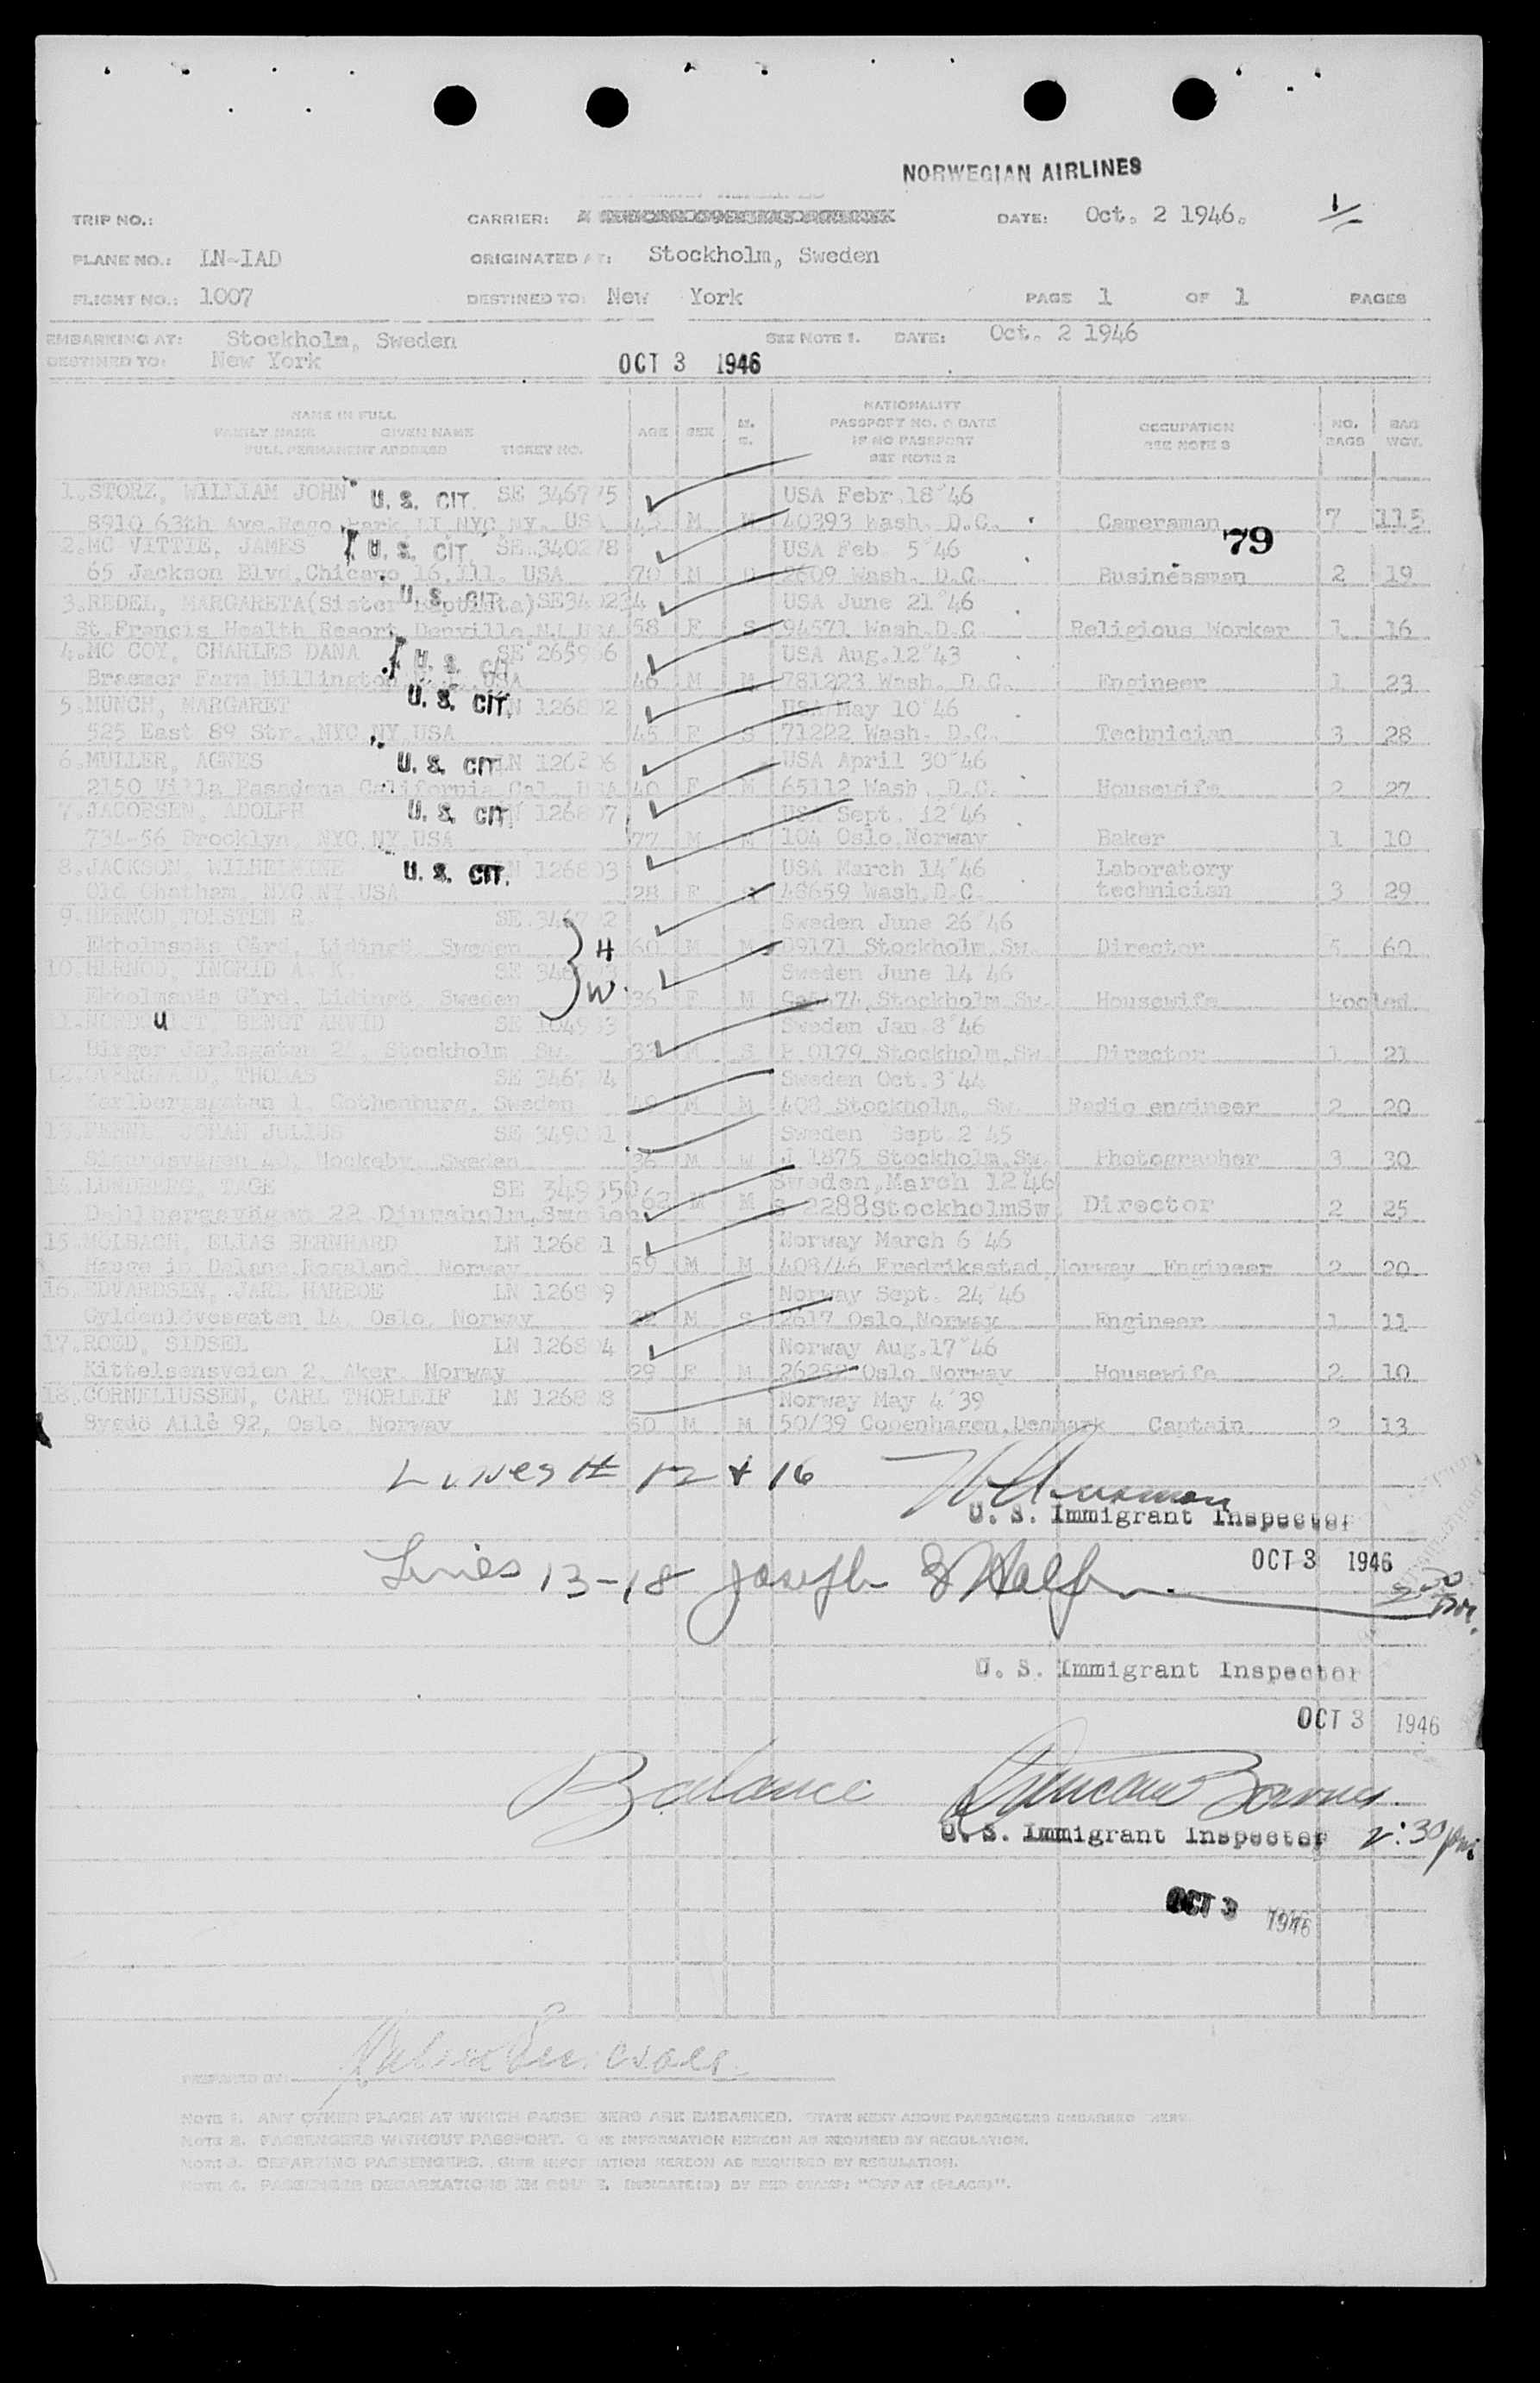 NORWEGIAN AIRLINES
TRIP NO.: CARRIER: DATE: Oct. 2 1946. 1
PLANE NO.: LN-IAD ORIGINATED AT: Stockholm, Sweden
FLIGHT NO.: 1007 DESTINED TO: New York PAGE 1 OF 1 PAGES
EMBARKING AT: Stockholm, Sweden SEE NOTE 1. DATE: Oct. 2 1946
DESTINED TO: New York OCT 3 1946
NAME IN FULL
FAMILY NAME GIVEN NAME
FULL PERMANENT ADDRESS TICKET NO. AGE SEX M. S. NATIONALITY PASSPORT NO. & DATE IF NO PASSPORT SEE NOTE 2 OCCUPATION SEE NOTE 3 NO. BAGS BAG WGT.
1. STORZ, WILLIAM JOHN U. S. CIT. SE 346775 USA Febr.18'46
8910 63th Ave.Rego Park LI NYC NY. USA M 40393 Wash. D.C. Cameraman 7 115
79
2. MC VITTIE, JAMES U. S. CIT. SE 340278 USA Feb 5'46
65 Jackson Blvd,Chicago 16,Ill. USA 70 M 2609 Wash. D.C. Businessman 2 19
3. REDEL, MARGARETA(Sister Baptista) U. S. CIT. SE340234 USA June 21'46
St.Francis Health Resort Denville N.J.USA 58 F S 94571 Wash.D.C. Religious Worker 1 16
4. MC COY, CHARLES DANA U. S. CIT SE 265966 USA Aug.12'43
Braemer Farm Millington USA 46 M M 781223 Wash. D.C. Engineer 1 23
5. MUNCH, MARGARET U. S. CIT. LN 126802 USA May 10'46
525 East 89 Str. NYC NY USA 45 F S 71222 Wash. D.C. Technician 3 28
6. MULLER, AGNES U. S. CIT. LN 126806 USA April 30'46
2150 Villa Pasadena California Cal. USA 40 F M 65112 Wash. D.C. Housewife 2 27
7. JACOBSEN, ADOLPH U. S. CIT. LN 126807 USA Sept. 12'46
734-56 Brooklyn, NYC NY USA 77 M M 104 Oslo,Norway Baker 1 10
8. JACKSON, WILHELMINE U. S. CIT. LN 126803 USA March 14'46 Laboratory
Old Chatham, NYC NY USA 28 F 48659 Wash,D.C. technician 3 29
9. HERNOD TORSTEN R. SE 346792 Sweden June 26'46
Ekholmsnäs Gård, Lidingö, Sweden H 60 M M 09171 Stockholm,Sw. Director 5 60
10. HERNOD, INGRID A. K. Sweden June 14 46
Ekholmsnäs Gård, Lidingö, Sweden W. 36 F M Stockholm Sw. Housewife Pooled
11. BENGT ARVID Sweden Jan.8'46
u
Birger Jarlsgaten Stockholm Sw. M S Stockholm,Sw. Director 1 21
12. ÖVERGAARD, THOMAS Sweden Oct.3'44
Karlbergsgatan 1, Gothenburg, Sweden M M 408 Stockholm, Sw. Radio engineer 2 20
13. JOHAN JULIUS Sweden Sept 2 45
Sweden 36 M W J 1875 Stockholm,Sw. Photographer 3 30
14. LUNDBERG, TAGE SE 349350 Sweden,March 12'46
Dahlbergsvägen 22 Djursholm,Sweden 62 M M 2288StockholmSw Director 2 25
15. MÖLBACH, ELIAS BERNHARD LN 126801 Norway March 6 46
Hauge in Dalane Rogaland, Norway 59 M M 408/46 Fredriksstad,Norway Engineer 2 20
16. EDVARDSEN, JARL HARBOE LN 126809 Norway Sept. 24'46
Gyldenlövesgaten 14, Oslo, Norway M S 2617 Oslo,Norway Engineer 1 11
17. ROED, SIDSEL LN 126804 Norway Aug.17'46
Kittelsensveien 2, Aker, Norway 29 F M Oslo Norway Housewife 2 10
18. CORNELIUSSEN, CARL THORLEIF LN 126808 Norway May 4'39
Bygdö Allé 92, Oslo, Norway 50 M M 50/39 Copenhagen,Denmark Captain 2 13
Lines # 12 + 16
U. S. Immigrant Inspector
OCT 3 1946
Lines 13-18 Joseph
U. S. Immigrant Inspector
OCT 3 1946
Balance Duncan
U. S. Immigrant Inspector 2:30 pm.
OCT 3 1946
PREPARED BY:
NOTE 1. ANY OTHER PLACE AT WHICH PASSENGERS ARE EMBARKED. STATE NEXT ABOVE PASSENGERS EMBARKED HERE.
NOTE 2. PASSENGERS WITHOUT PASSPORT. GIVE INFORMATION HEREON AS REQUIRED BY REGULATION.
NOTE 3. DEPARTING PASSENGERS. GIVE INFORMATION HEREON AS REQUIRED BY REGULATION.
NOTE 4. PASSENGER DEBARKATIONS EN ROUTE. INDICATE(D) BY RED STAMP: "OFF AT (PLACE)".